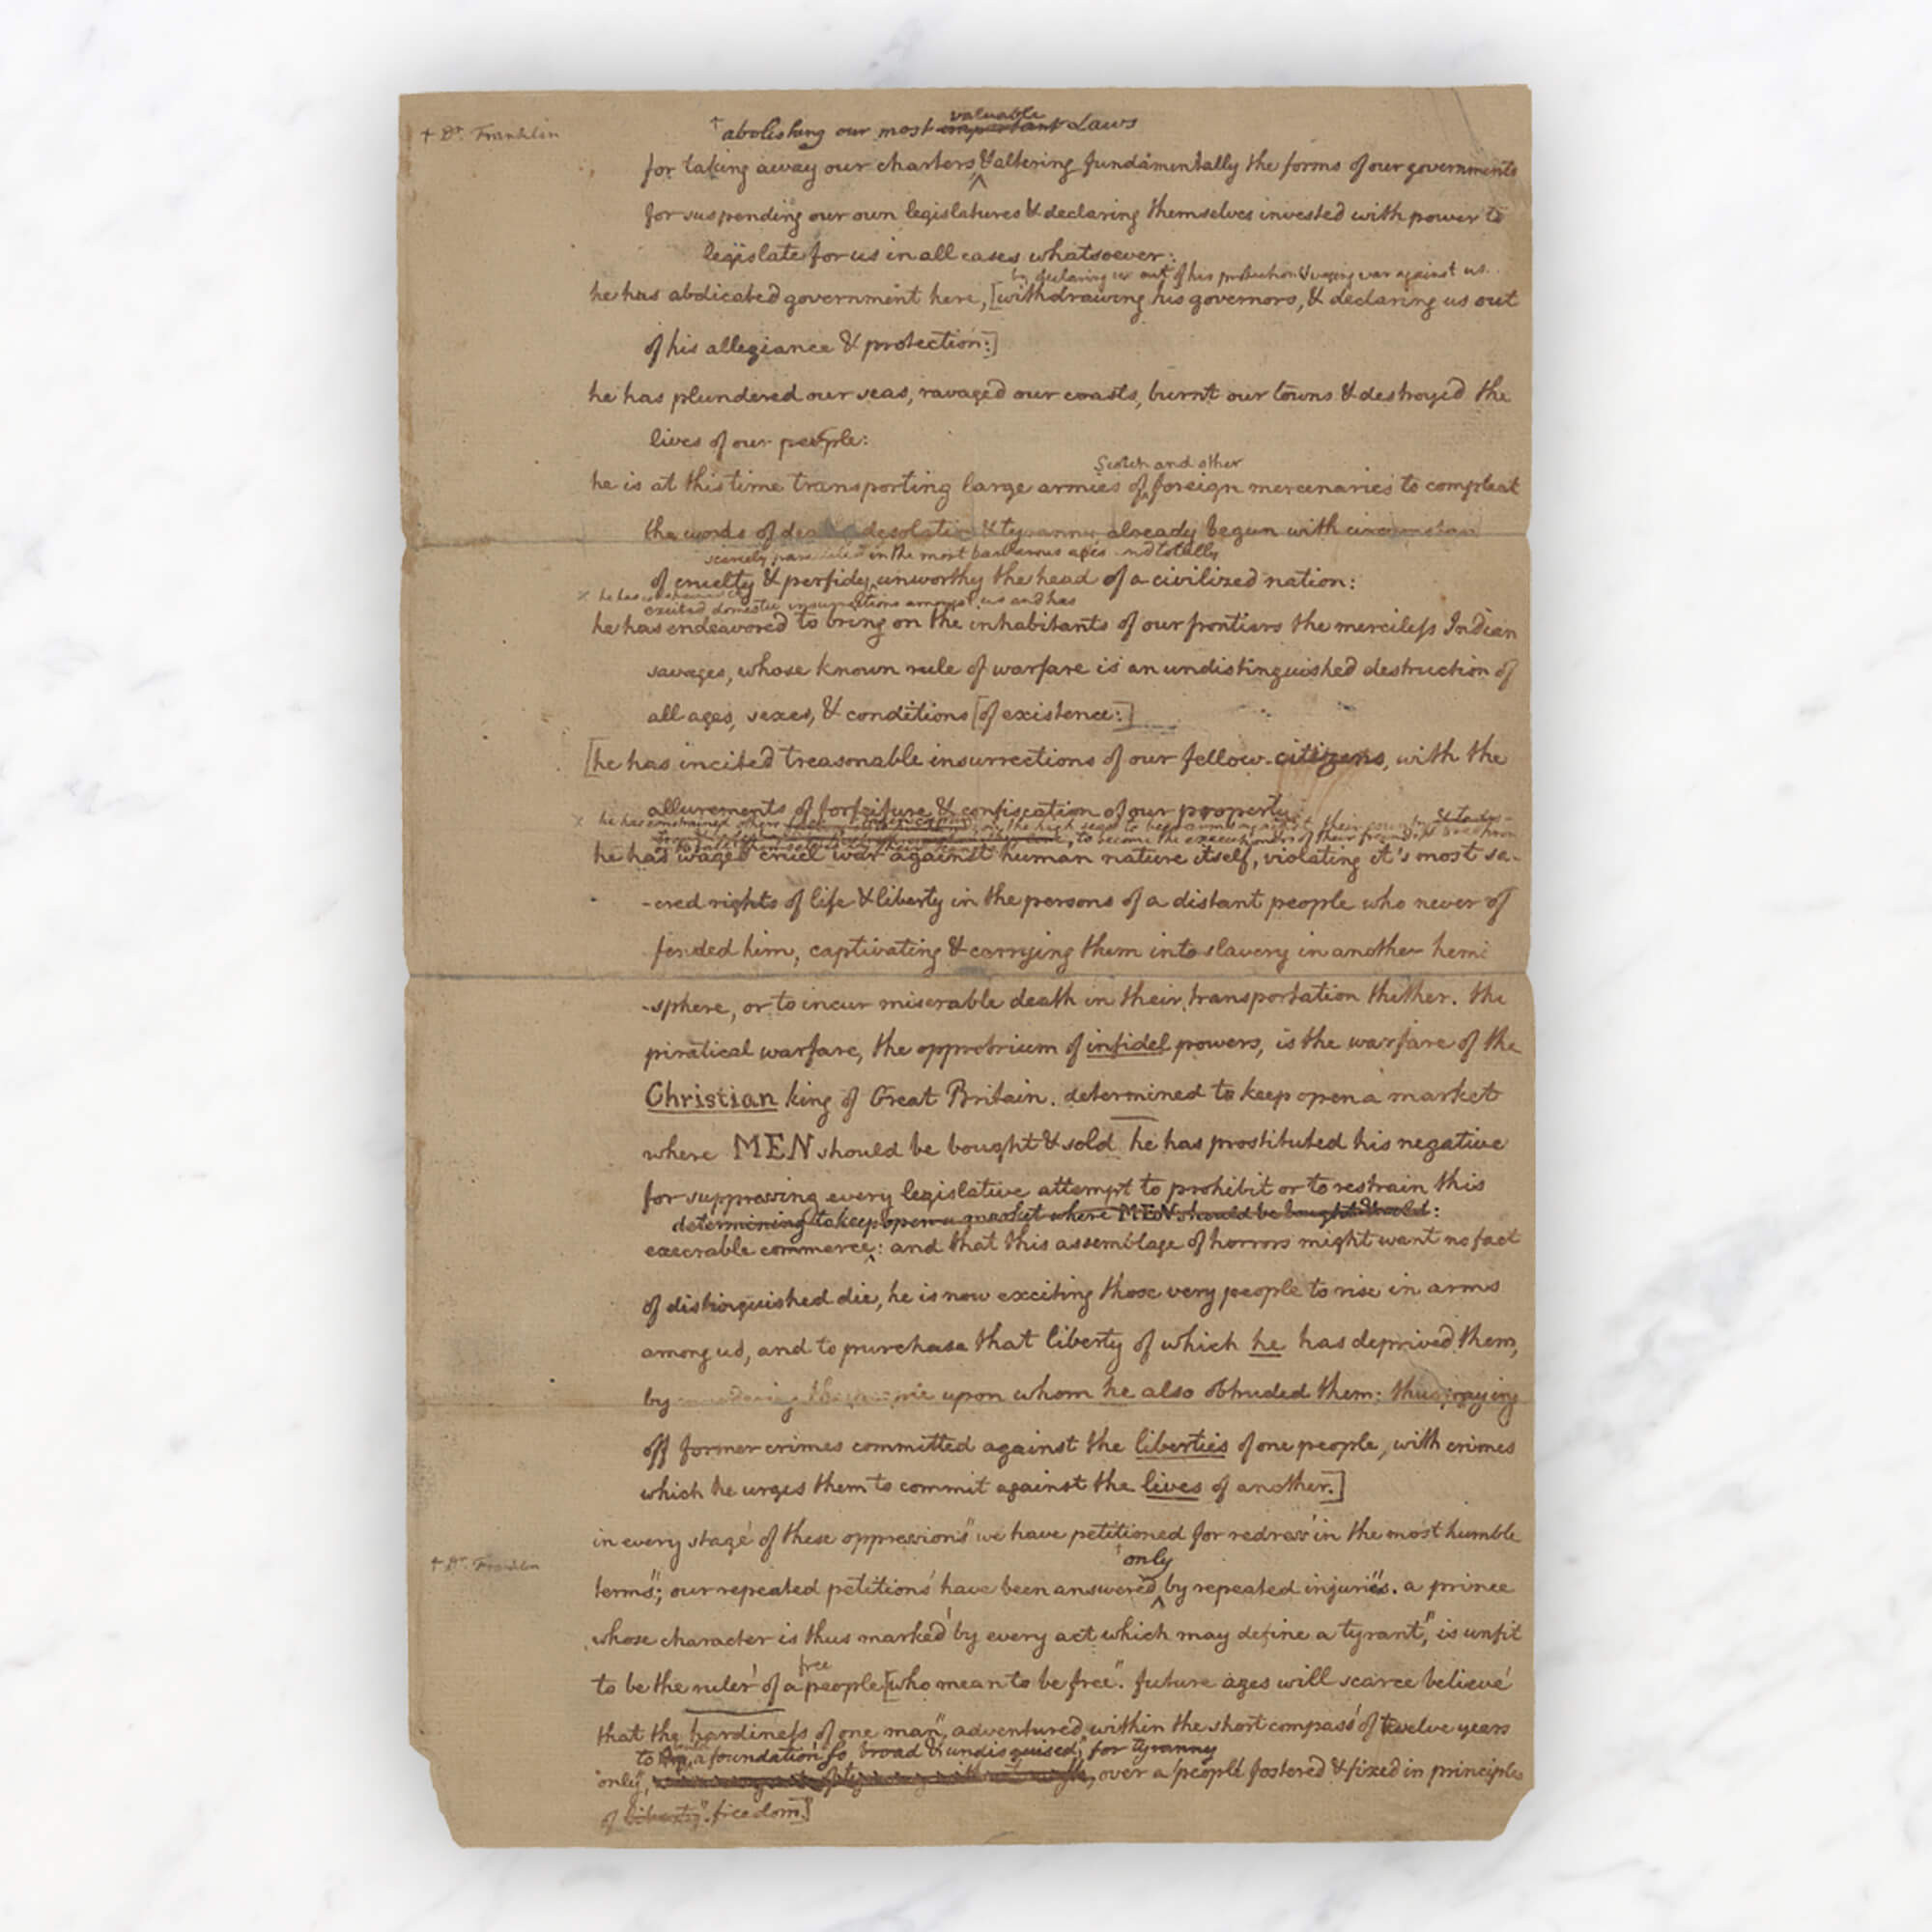 + Dr. Franklin
† abolishing our most important valuable Laws
for taking away our charters, & altering fundamentally the forms of our governments
for suspending our own legislatures & declaring themselves invested with power to
legislate for us in all cases whatsoever:
by declaring us out of his protection & waging war against us.
he has abdicated government here, [withdrawing his governors, & declaring us out
of his allegiance & protection:]
he has plundered our seas, ravaged our coasts, burnt our towns & destroyed the
lives of our people:
Scotch and other
he is at this time transporting large armies of foreign mercenaries to compleat
the works of desolation & tyranny already begun with
scarcely paralleled in the most barbarous ages and totally
of cruelty & perfidy unworthy the head of a civilized nation:
x he has
excited domestic insurrections amongst us and has
he has endeavored to bring on the inhabitants of our frontiers the merciless Indian
savages, whose known rule of warfare is an undistinguished destruction of
all ages, sexes, & conditions [of existence:]
[he has incited treasonable insurrections of our fellow-citizens, with the
allurements of forfeiture & confiscation of our property:
x he has constrained others on the high seas to bear arms against their country
to become the executioners of their friends
he has waged cruel war against human nature itself, violating it's most sa-
-cred rights of life & liberty in the persons of a distant people who never of
fended him, captivating & carrying them into slavery in another hemi
-sphere, or to incur miserable death in their transportation thither. the
piratical warfare, the opprobrium of infidel powers, is the warfare of the
Christian king of Great Britain. determined to keep open a market
where MEN should be bought & sold he has prostituted his negative
for suppressing every legislative attempt to prohibit or to restrain this
determining to keep open a market where MEN should be bought & sold:
execrable commerce: and that this assemblage of horrors might want no fact
of distinguished die, he is now exciting those very people to rise in arms
among us, and to purchase that liberty of which he has deprived them,
by upon whom he also obtruded them: thus paying
off former crimes committed against the liberties of one people, with crimes
which he urges them to commit against the lives of another.]
in every stage of these oppressions "we have petitioned for redress in the most humble
+ Dr. Franklin
† only
terms"; our repeated petitions have been answered by repeated injuries. a prince
whose character is thus marked by every act which may define a tyrant," is unfit
free
to be the ruler of a people [who mean to be free". future ages will scarce believe
that the hardiness of one man", adventured within the short compass of twelve years
to a foundation so broad & undisguised, for tyranny
"only", over a people fostered & fixed in principles
of liberty". freedom.]